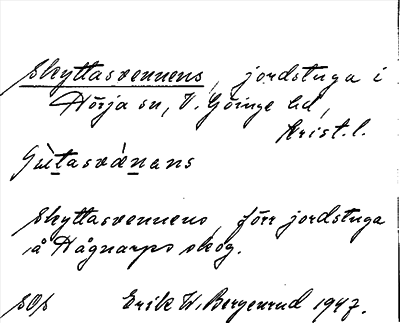 Skyttasvennens, jordstuga i
Hörja sn, V. Göinge hd,
Krist. l.
Skyttasvennens, förr jordstuga
å Hågnarps skog.
Erik W. Bergenrud 1947.